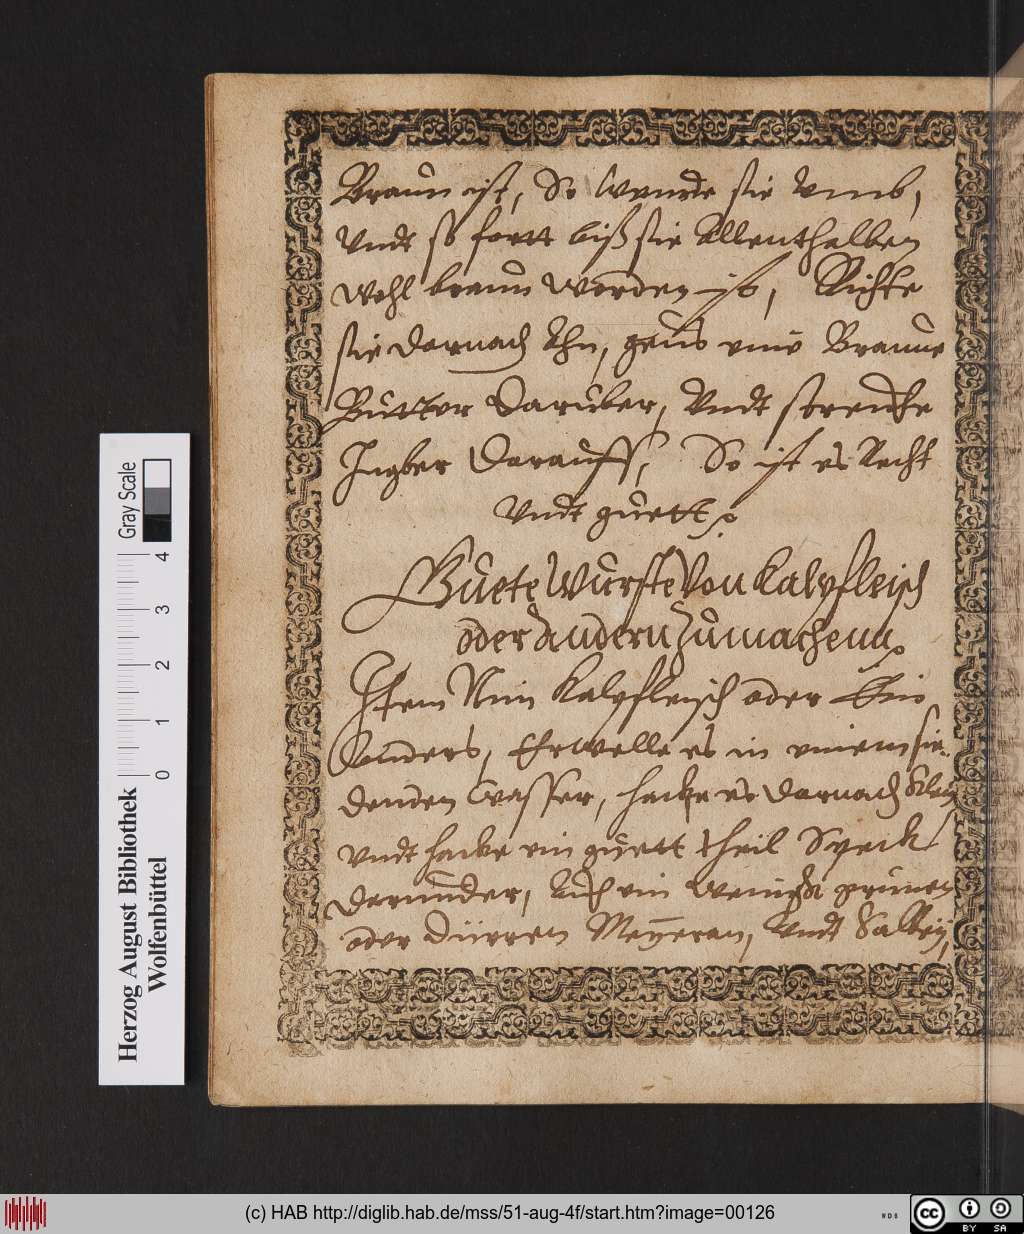 Braun ist, So wende sie vmb,
Vndt so fortt biß sie Allenthalben
wohl braun worden ist, Richte
sie darnach Ahn, geus eine Braune
Butter daruber, Vndt streuche
Ingber darauff, So ist es Recht
Vndt guett.
Guete Wurste Von Kalbfleisch
oder andern zu machenn.
Item Nim Kalbfleisch oder
sonders, Erwelle es in einem sie-
denden wasser, hacke es darnach klein
vndt hacke ein guett theil Speck
darunder, Auch ein wenigk grunen
oder dürren Meyeran, Vndt Salbey,
Herzog August Bibliothek
Wolfenbüttel
0 1 2 3 4
Gray Scale
(c) HAB http://diglib.hab.de/mss/51-aug-4f/start.htm?image=00126
WDB
cc BY SA